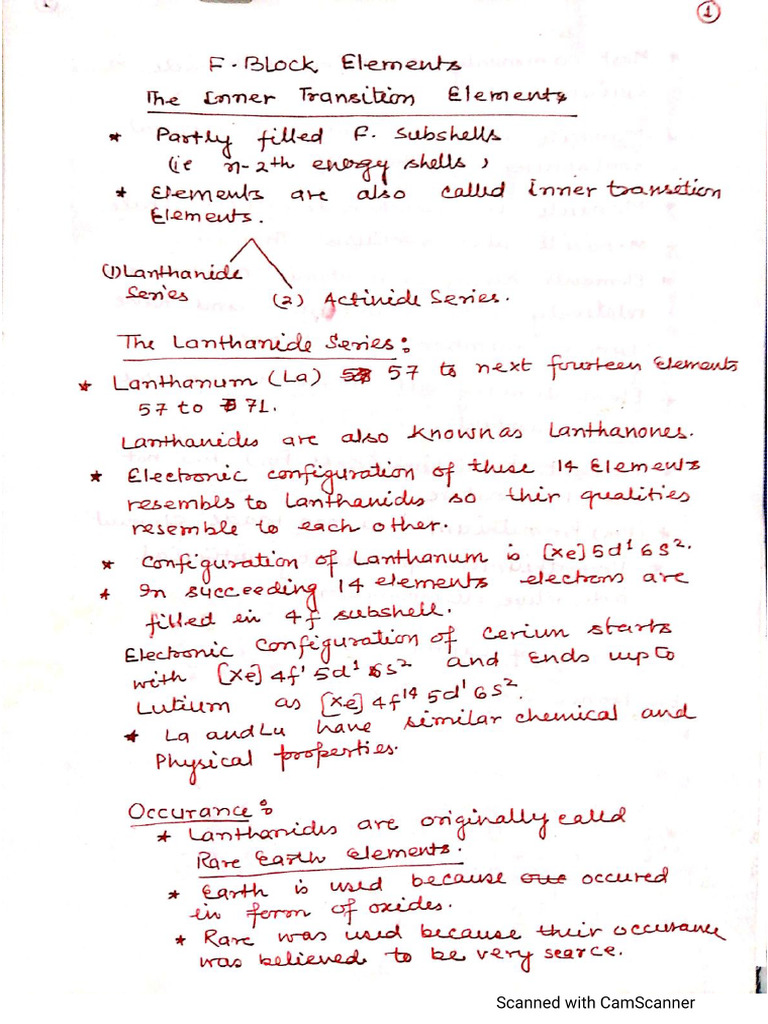 1
F-Block Elements
The Inner Transition Elements
* Partly filled F. Subshells
(ie n-2th energy shells)
* Elements are also called inner transition
Elements.
(1) Lanthanide
Series
(2) Actinide Series.
The Lanthanide Series:
* Lanthanum (La) 57 to next fourteen elements
57 to 71.
Lanthanides are also known as Lanthanones.
* Electronic configuration of these 14 Elements
resembls to Lanthanides so thir qualities
resemble to each other.
* Configuration of Lanthanum is [Xe] 5d¹ 6s².
* In succeeding 14 elements electrons are
filled in 4f subshell.
Electronic configuration of Cerium starts
with [Xe] 4f¹ 5d¹ 6s² and Ends upto
Lutium as [Xe] 4f¹⁴ 5d¹ 6s².
* La and Lu have similar chemical and
Physical properties.
Occurance:
* Lanthanides are originally called
Rare Earth Elements.
* Earth is used because occured
in form of oxides.
* Rare was used because their occurance
was believed to be very scarce.
Scanned with CamScanner